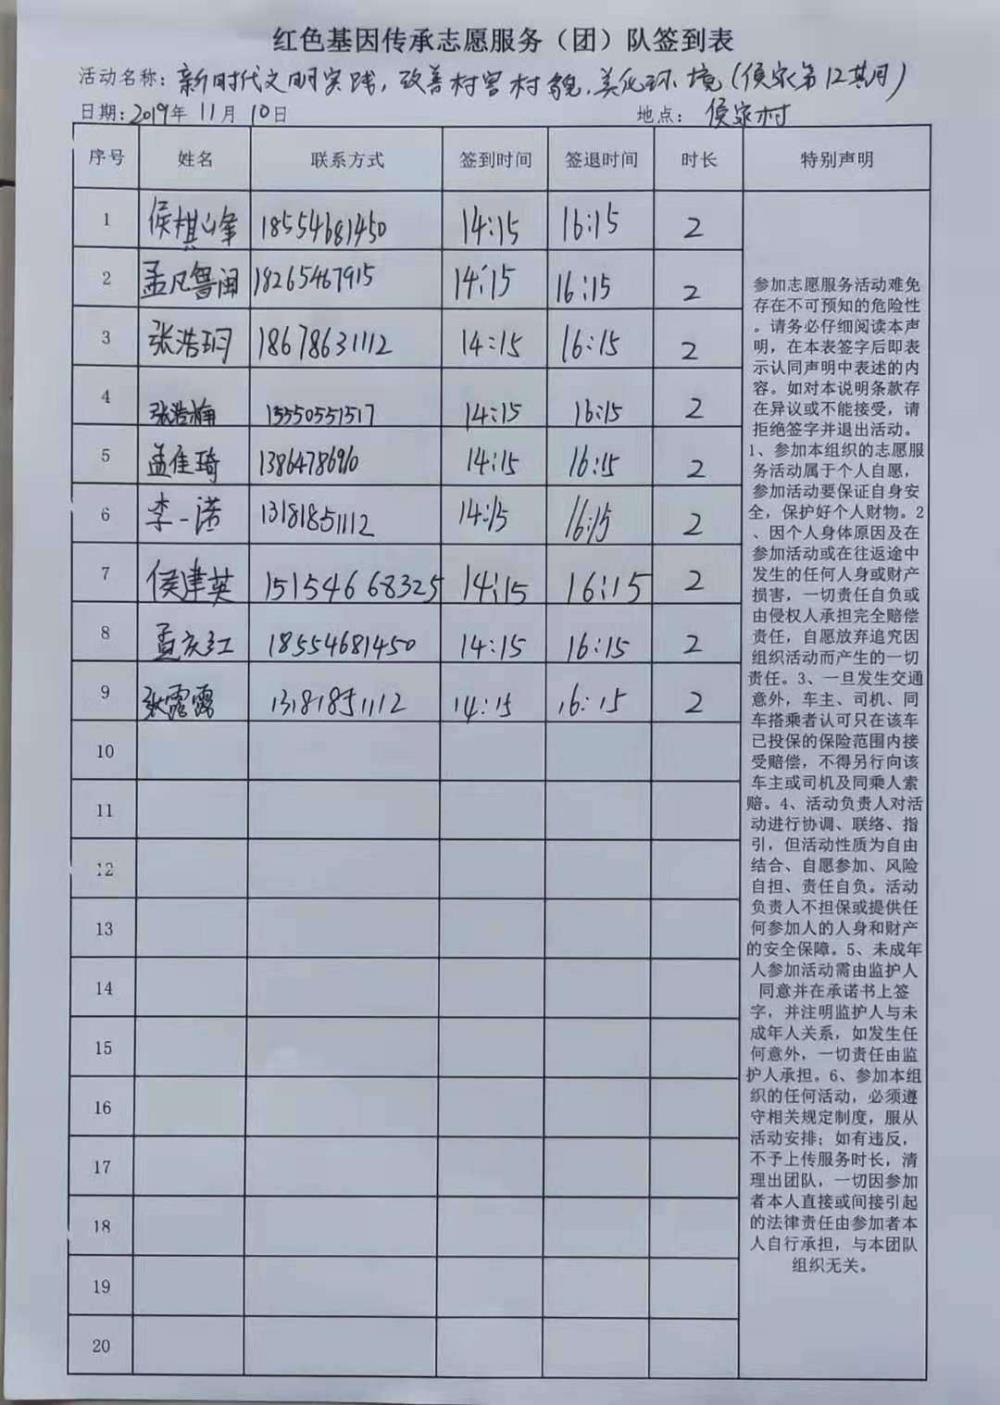 红色基因传承志愿服务（团）队签到表
活动名称：新时代文明实践，改善村容村貌，美化环境（侯家第12期）
日期：2019年 11月 10日 地点：侯家村
序号 姓名 联系方式 签到时间 签退时间 时长 特别声明
1 侯棋峰 18554681450 14:15 16:15 2
2 孟凡鲁闽 18265467915 14:15 16:15 2
3 张浩珂 18678631112 14:15 16:15 2
4 张浩楠 15550551517 14:15 16:15 2
5 孟佳琦 14:15 16:15 2
6 李一诺 13181851112 14:15 16:15 2
7 侯建英 15154668325 14:15 16:15 2
8 孟庆红 18554681450 14:15 16:15 2
9 张露露 13181851112 14:15 16:15 2
10
11
12
13
14
15
16
17
18
19
20
参加志愿服务活动难免
存在不可预知的危险性
。请务必仔细阅读本声
明，在本表签字后即表
示认同声明中表述的内
容。如对本说明条款存
在异议或不能接受，请
拒绝签字并退出活动。
1、参加本组织的志愿服
务活动属于个人自愿，
参加活动要保证自身安
全，保护好个人财物。2
、因个人身体原因及在
参加活动或在往返途中
发生的任何人身或财产
损害，一切责任自负或
由侵权人承担完全赔偿
责任，自愿放弃追究因
组织活动而产生的一切
责任。3、一旦发生交通
意外，车主、司机、同
车搭乘者认可只在该车
已投保的保险范围内接
受赔偿，不得另行向该
车主或司机及同乘人索
赔。4、活动负责人对活
动进行协调、联络、指
引，但活动性质为自由
结合、自愿参加、风险
自担、责任自负。活动
负责人不担保或提供任
何参加人的人身和财产
的安全保障。5、未成年
人参加活动需由监护人
同意并在承诺书上签
字，并注明监护人与未
成年人关系，如发生任
何意外，一切责任由监
护人承担。6、参加本组
织的任何活动，必须遵
守相关规定制度，服从
活动安排；如有违反，
不予上传服务时长，清
理出团队，一切因参加
者本人直接或间接引起
的法律责任由参加者本
人自行承担，与本团队
组织无关。